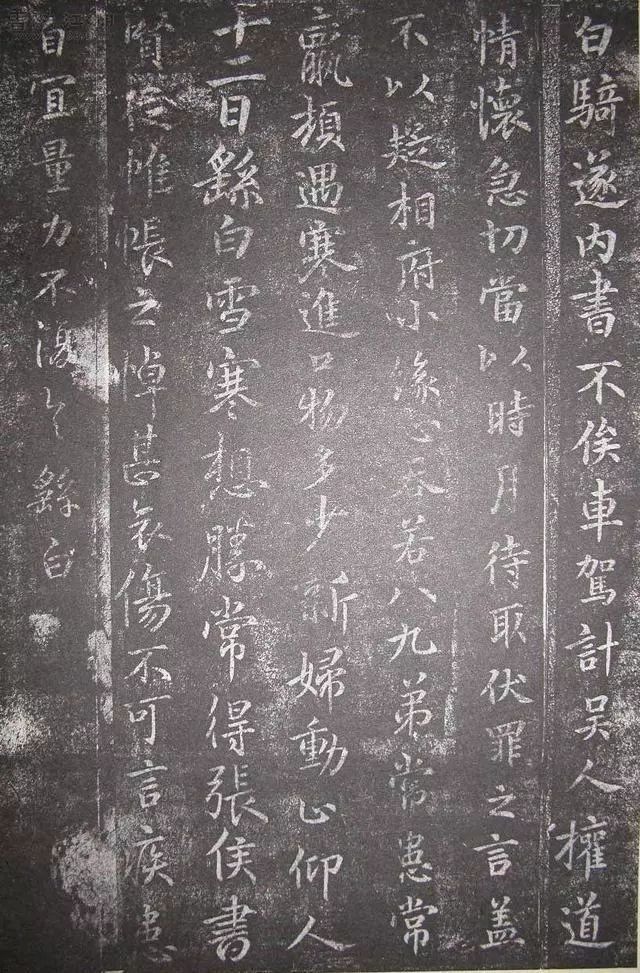 白騎遂內書不俟車駕計吳人權道
情懷急切當以時月待取伏罪之言蓋
不以疑相府小緣心不若八九弟常患常
羸頓遇寒進口物多少新婦動止仰人
十二日繇白雪寒想勝常得張侯書
賢從帷帳之悼甚哀傷不可言疾患
自宜量力不復之繇白